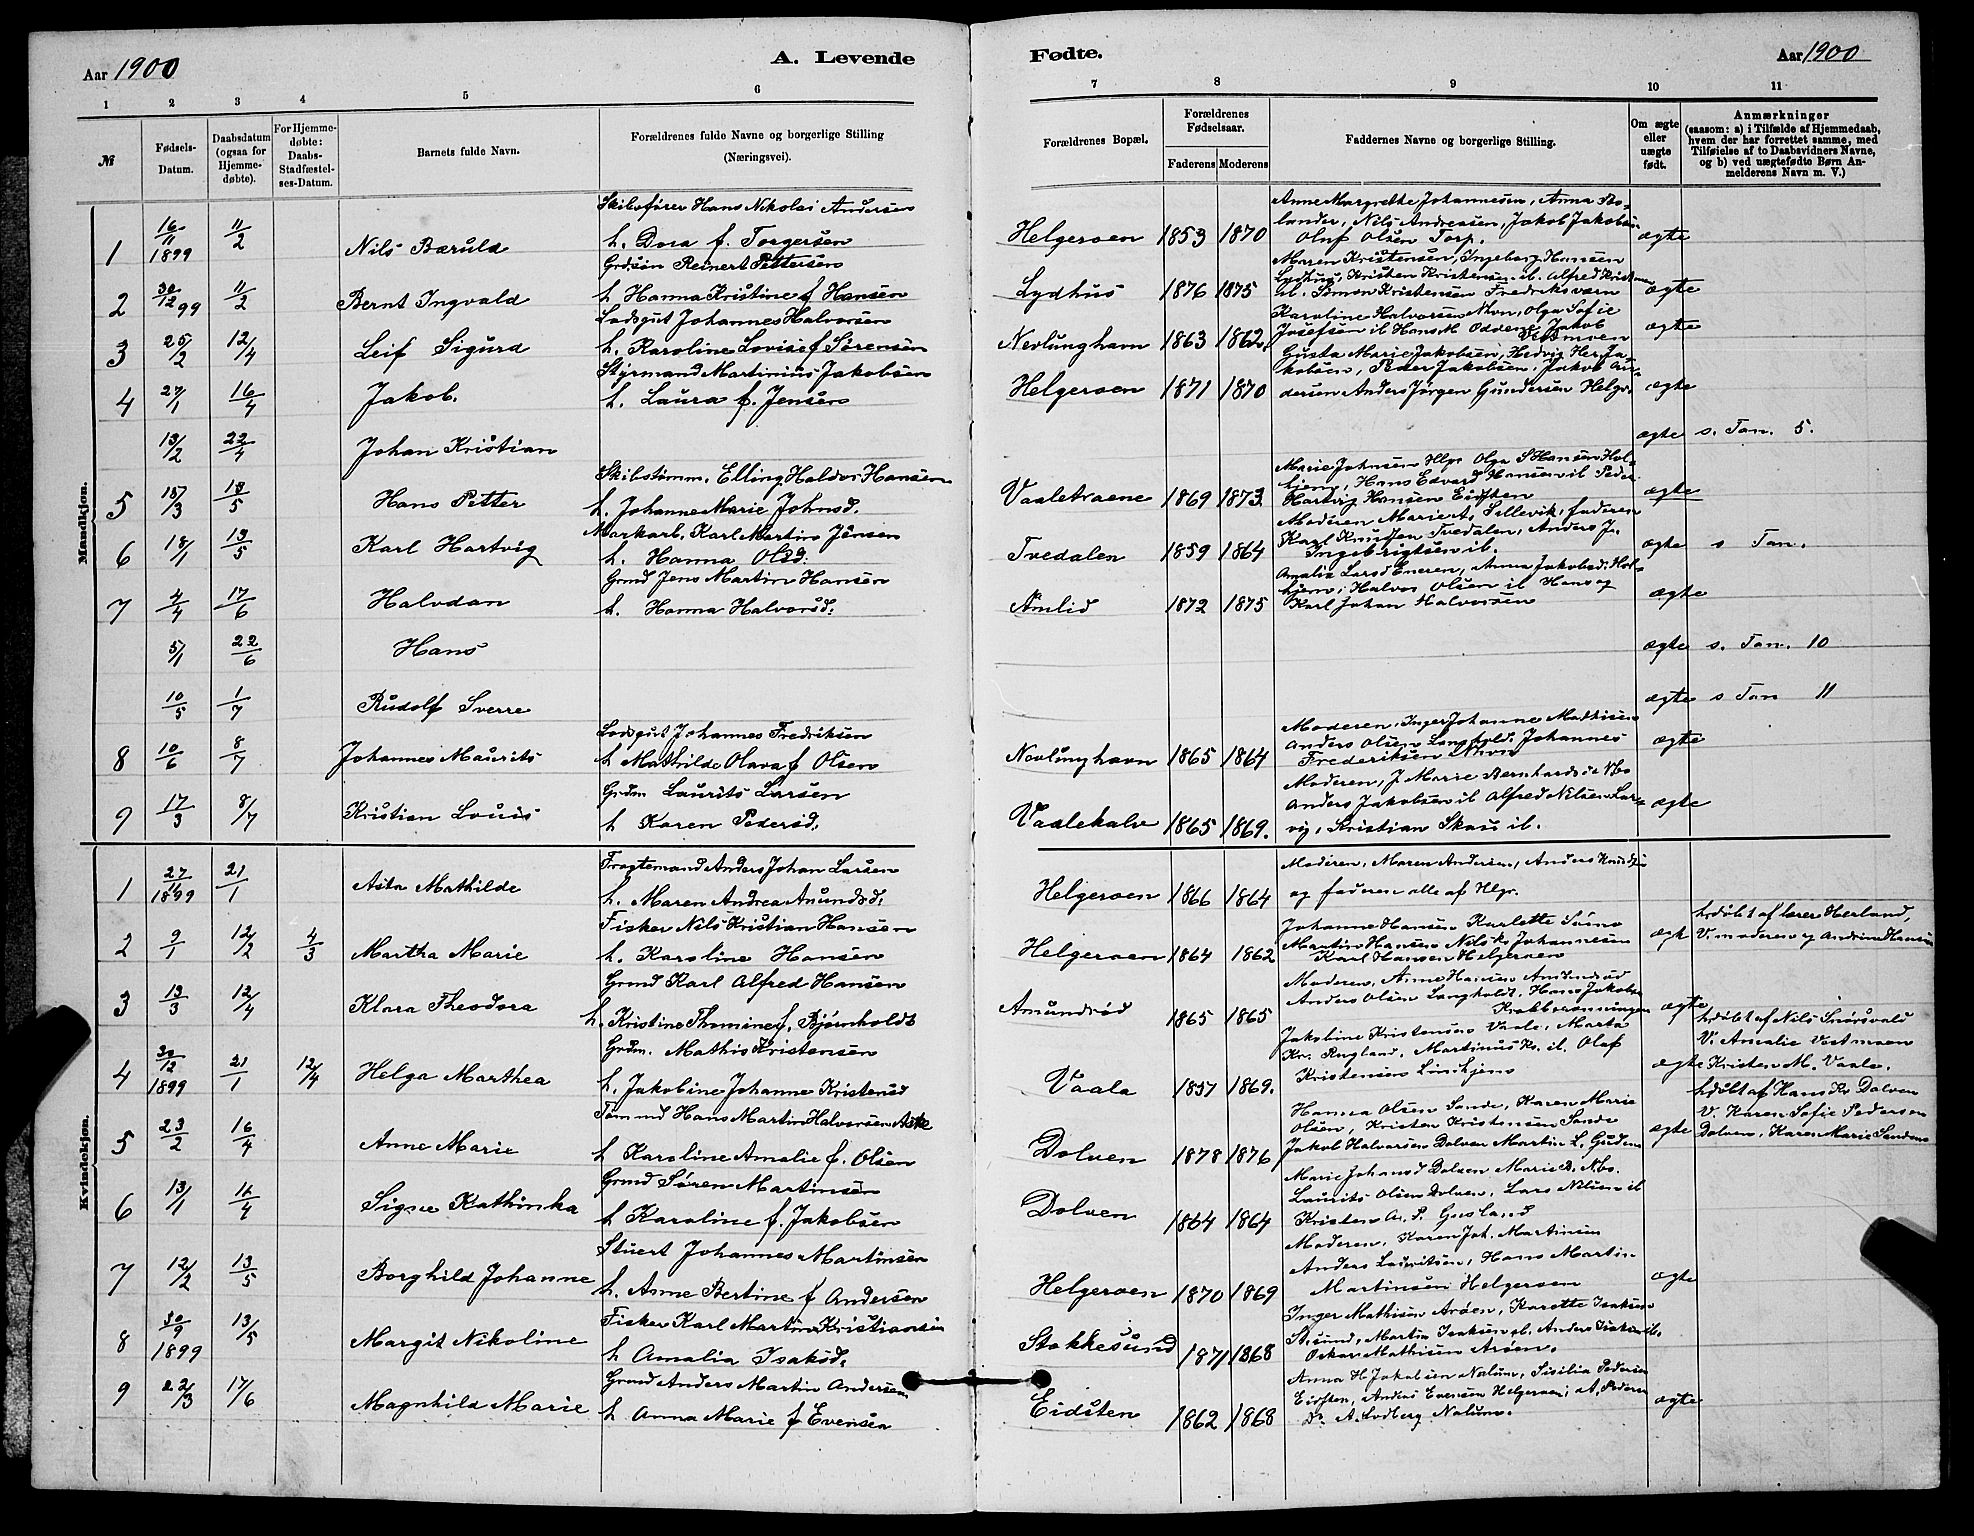 Aar 1900
A. Levende
Fødte.
Aar 1900
1 2 3 4 5 6 7 8 9 10 11
№
Fødsels-Datum.
Daabsdatum (ogsaa for Hjemme-døbte).
For Hjemme-døbte: Daabs-Stadfæstel-ses-Datum.
Barnets fulde Navn.
Forældrenes fulde Navne og borgerlige Stilling (Næringsvei).
Forældrenes Bopæl.
Forældrenes Fødselsaar.
Faderens Moderens
Faddernes Navne og borgerlige Stilling.
Om ægte eller uægte født.
Anmærkninger
(saasom: a) i Tilfælde af Hjemmedaab, hvem der har forrettet samme, med Tilføielse af to Daabsvidners Navne, og b) ved uægtefødte Børn An-melderens Navn m. V.)
Mandkjøn.
Skibsfører Hans Nikolai Andersen
Anne Margrethe Johannesen, Anna Bo-
lander, Nils Andreasen, Jakob Jakobsen
1 16/11 1899 11/2 Nils Baruld h. Dora f. Torgersen Helgeroen 1853 1870 Oluf Olsen Torp. ægte
Grdsøn Reinert Pettersen
Maren Kristensen, Ingeborg Hansen
Lydhus, Kristen Kristensen il. Alfred Kristensen
2 30/12 99 11/2 Bernt Ingvald h. Hanna Kristine f Hansen Lydhus 1876 1875 Simon Kristensen Fredriksværn ægte
Lodsgut Johannes Halvorsen
Karoline Halvorsen Nhvn, Olga Sofie
3 25/2 12/4 Leif Sigurd h. Karoline Lovise f Sørensen Nevlunghavn 1863 1862 Josefsen il Hans M Jakob ægte
Styrmand Martinius Jakobsen
Gusta Marie Jakobsen, Hedvig Her Ja-
kobsen, Peder Jakobsen, Jakob An-
4 27/1 16/4 Jakob. h. Laura f. Jensen Helgeroen 1871 1870 dersen Anders Jørgen Gundersen Helgr. ægte
13/2 22/4 Johan Kristian ægte s. Tan. 5.
Skibstømm. Elling Haldor Hansen
Marie Johnsen Hlgr Olga S Hansen Hol-
kjem, Hans Edvard Hansen il Peder
5 15/3 13/5 Hans Petter h. Johanne Marie Johnsd. Vaaletraene 1869 1873 Hartvig Hansen Eidsten ægte
Markarb. Karl Martin Jensen
Moderen Marie A. Sillevik, faderen
Karl Knudsen Tvedalen, Anders J.
6 18/1 13/5 Karl Hartvig h. Hanna Olsd. Tvedalen 1859 1864 Ingebrigtsen il. ægte s Tan.
Grmd Jens Martin Hansen
Amalie Larsd Eneren, Anna Jakobsd. Hol-
kjem, Halvor Olsen il Hans og
7 4/4 17/6 Halvdan h. Hanna Halvorsd. Amlid 1872 1875 Karl Johan Halvorsen ægte
5/1 22/6 Hans ægte s. Tan. 10
10/5 1/7 Rudolf Sverre ægte s Tan 11
Lodsgut Johannes Fredriksen
Moderen, Inger Johanne Mathisen
Anders Olsen Langholdt, Johannes
8 10/6 8/7 Johannes Maurits h Mathilde Olava f Olsen Nevlunghavn 1865 1864 Frederiksen Nhvn ægte
Grdm Laurits Larsen
Moderen, J. Marie Bernhardsd.
Anders Jakobsen il Alfred Nilsen Lar-
9 17/3 8/7 Kristian Louis h Karen Pedersd. Vaalekalv 1865 1869. vig, Kristian Skau il. ægte
Kvindekjøn.
Fragtemand Anders Johan Larsen
Moderen, Maren Andersen, Anders Knudsen
1 27/11 1899 21/1 Asta Mathilde h. Maren Andrea Amundsd. Helgeroen 1866 1864 og faderen alle af Hlgr.
Fisker Nils Kristian Hansen
Johanne Hansen Karlette Simo
hdøbt af lærer Herland,
2 9/1 12/2 4/3 Martha Marie h. Karoline Hansen Helgeroen 1864 1862 Martin Hansen Nils Kr Johannesen ægte V. moderen og Andrine Hansen
Karl Hansen Helgeroen
Grmd Karl Alfred Hansen
Moderen, Anne Hansen Amundrød
3 13/3 12/4 Klara Theodora h. Kristine Thomine f. Bjørnholdt Amundrød 1865 1865 Anders Olsen Langholdt, Hans Jakobsen ægte
Grdm. Mathis Kristensen
Jakobine Kristensen Vaale, Marta
hdøbt af Nils Snørsvald
Kr. Rugland, Martinus Kr. il. Olaf
V. Amalie Vestmoen
4 30/12 1899 21/1 12/4 Helga Marthea h. Jakobine Johanne Kristensd Vaale 1857 1869. Kristensen Linskjem ægte Kristen M. Vaale.
Tømmd Hans Martin Halvorsen Aske
Hanna Olsen Sande, Karen Marie
hdøbt af Hans Kr Dolven
Olsen, Kristen Kristensen Sande
V. Karen Sofie Pedersen
5 23/2 16/4 Anne Marie h Karoline Amalie f. Olsen Dolven 1878 1876 Jakob Halvorsen Dolven Martin L. ægte Dolven, Karen Marie Sandene
Grmd Søren Martinsen
Marie Johansd Dolven Marie B. Nbo.
Laurits Olsen Dolven, Lars Nilsen il
6 13/1 16/4 Signe Kathinka h Karoline f. Jakobsen Dolven 1864 1864 Kristen A. P. Gusland
Stuert Johannes Martinsen
Moderen, Karen Joh. Martinsen
Anders Lauritsen, Hans Martin
7 12/2 13/5 Borghild Johanne h. Anne Bertine f Andersen Helgeroen 1870 1869 Martinsen Helgeroen ægte
Fisker Karl Martin Kristiansen
Inger Mathisen Arøen, Karette Isaksen
St.sund, Martin Isaksen il. Anders Isaksen il.
8 30/9 1899 13/5 Margit Nikoline h Amalia Isaksd. Stokkesund 1871 1868 Oskar Mathisen Arøen.
Grmd Anders Martin Andersen
Anna H Jakobsen Nalum, Sisilia Pedersen
Eidsten, Anders Evensen Helgeroen, A. Pedersen
9 22/3 17/6 Magnhild Marie h Anna Marie f Evensen Eidsten 1862 1868 Dr. A. Lodberg Nalum. ægte